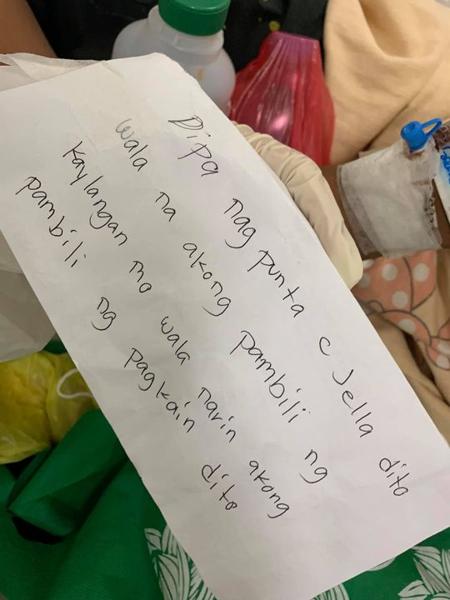 Dipa nag punta c Jella dito
wala na akong pambili ng
kaylangan mo wala narin akong
pambili ng pagkain dito